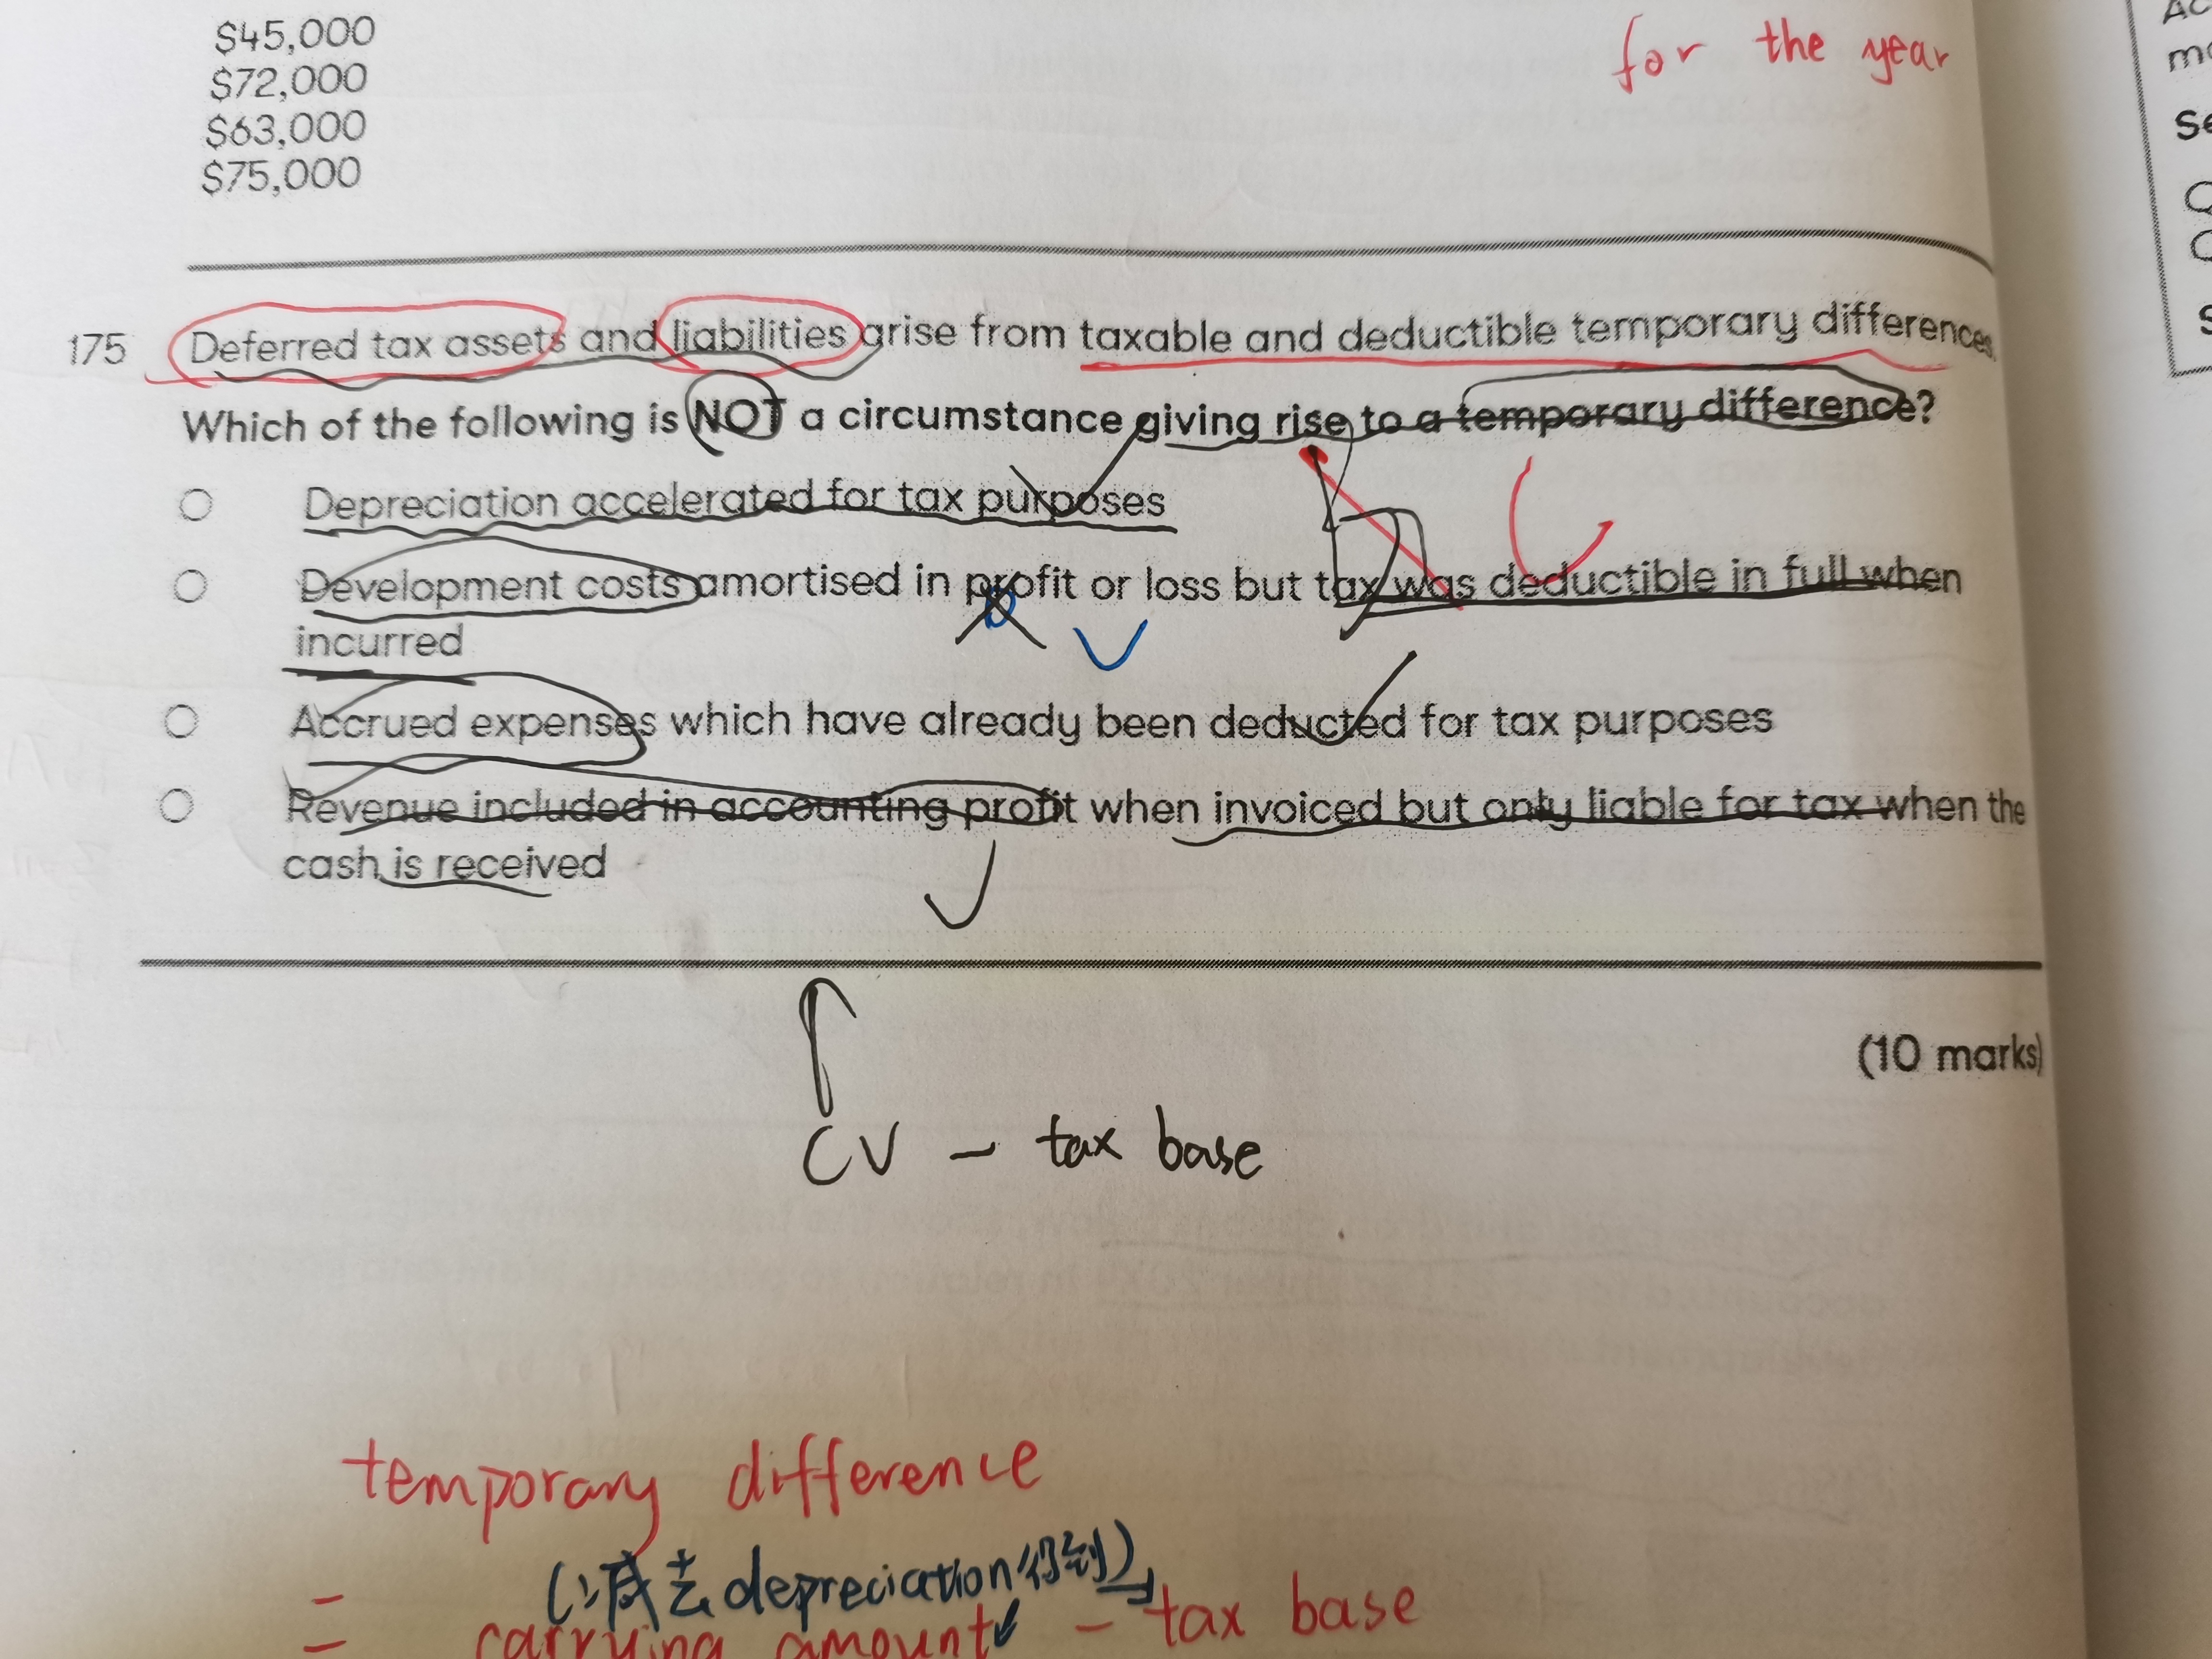 $45,000
for the year
$72,000
$63,000
$75,000
175 Deferred tax assets and liabilities arise from taxable and deductible temporary differences.
Which of the following is NOT a circumstance giving rise to a temporary difference?
Depreciation accelerated for tax purposes
Development costs amortised in profit or loss but tax was deductible in full when
incurred
Accrued expenses which have already been deducted for tax purposes
Revenue included in accounting profit when invoiced but only liable for tax when the
cash is received
(10 marks)
CV - tax base
temporary difference
(减去 depreciation 得到)
= carrying amount - tax base